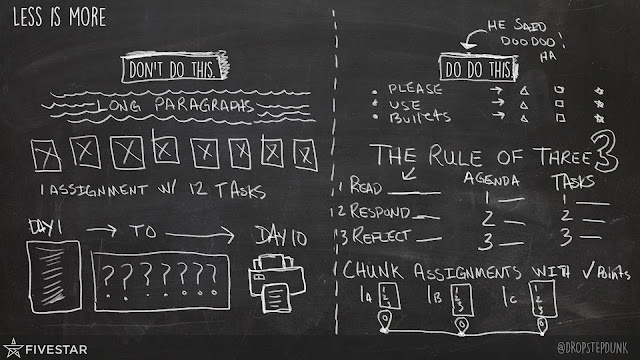 LESS IS MORE
DON'T DO THIS.
LONG PARAGRAPHS
1 ASSIGNMENT W/ 12 TASKS
DAY 1 → TO → DAY 10
? ? ? ? ? ? ?
HE SAID
DOODOO!
HA
DO DO THIS.
• PLEASE → △ □ ☆
• USE → △ □ ☆
• BULLETS → △ □ ☆
THE RULE OF THREE 3
1 READ
2 RESPOND
3 REFLECT
AGENDA
1
2
3
TASKS
1
2
3
CHUNK ASSIGNMENTS WITH ✓ POINTS
1A 1 2 3
1B 1 2 3
1C 1 2 3
FIVESTAR
@DROPSTEPDUNK